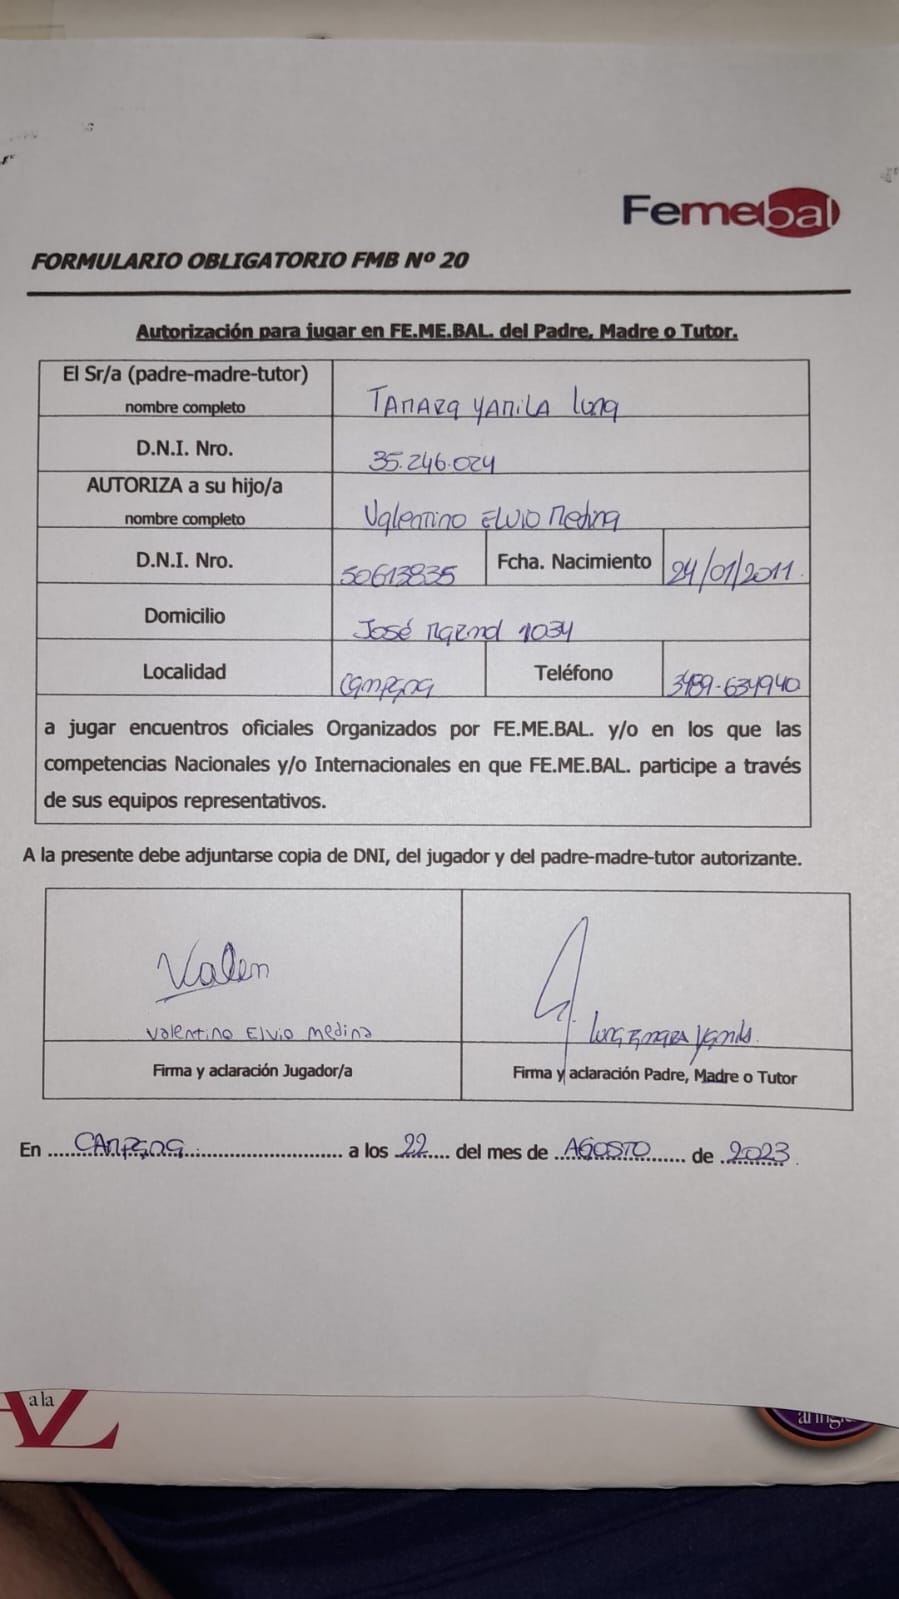 Femebal
FORMULARIO OBLIGATORIO FMB Nº 20
Autorización para jugar en FE.ME.BAL. del Padre, Madre o Tutor.
El Sr/a (padre-madre-tutor)
nombre completo
Tamara Yamila Luna
D.N.I. Nro.
35.246.024
AUTORIZA a su hijo/a
nombre completo
Valentino Elvio Medina
D.N.I. Nro.
50613835
Fcha. Nacimiento
24/01/2011.
Domicilio
José 1034
Localidad
Campana
Teléfono
3489-634940
a jugar encuentros oficiales Organizados por FE.ME.BAL. y/o en los que las
competencias Nacionales y/o Internacionales en que FE.ME.BAL. participe a través
de sus equipos representativos.
A la presente debe adjuntarse copia de DNI, del jugador y del padre-madre-tutor autorizante.
Valen
Valentino Elvio Medina
Luna Tamara Yamila.
Firma y aclaración Jugador/a
Firma y aclaración Padre, Madre o Tutor
En ....Campana........ a los 22.... del mes de ..AGOSTO...... de 2023.
a la